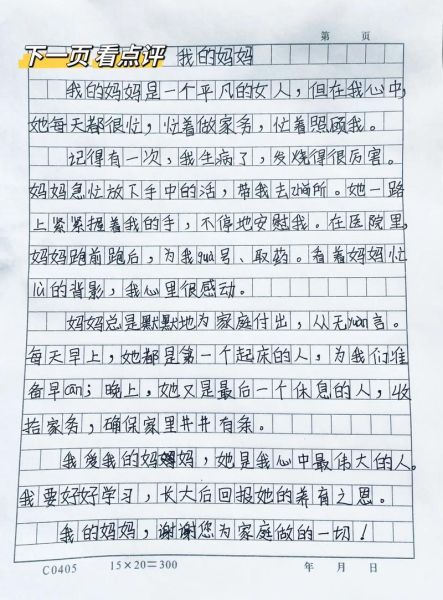 第 页
下一页 看点评 我的妈妈
我的妈妈是一个平凡的女人，但在我心中，
她每天都很忙，忙着做家务，忙着照顾我。
记得有一次，我生病了，发烧得很厉害。
妈妈急忙放下手中的活，带我去zhěn所。她一路
上紧紧握着我的手，不停地安慰我。在医院里，
妈妈跑前跑后，为我guà号、取药。看着妈妈忙
lù的背影，我心里很感动。
妈妈总是默默地为家庭付出，从无yuàn言。
每天早上，她都是第一个起床的人，为我们准
备早cān；晚上，她又是最后一个休息的人，收
拾家务，确保家里井井有条。
我爱我的妈妈，她是我心中最伟大的人。
我要好好学习，长大后回报她的养育之恩。
我的妈妈，谢谢您为家庭做的一切！
C0405 15×20=300 年 月 日